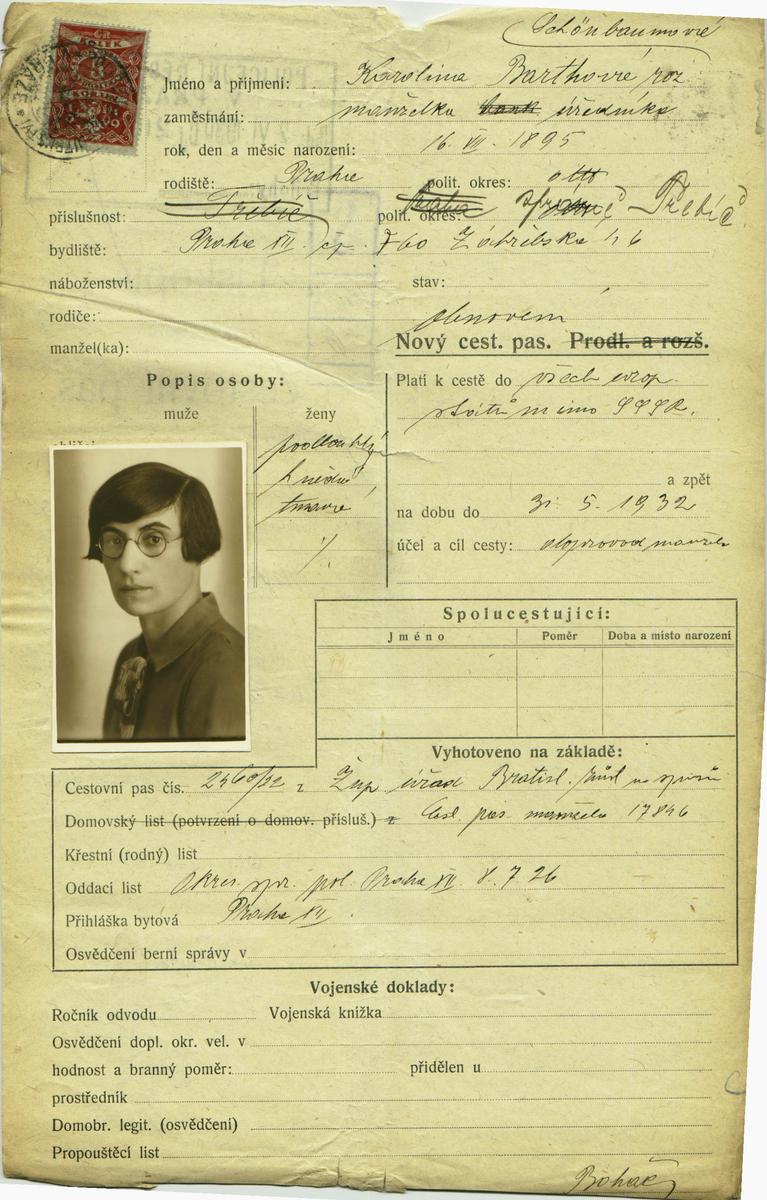 Schönbaumové
Jméno a příjmení: Karolina Barthové roz
zaměstnání: manželka bank úředníka
rok, den a měsíc narození: 16. VII. 1895
rodiště: Praha polit. okres: otto
příslušnost: Třebíč polit. okres: Třebíč
bydliště: Praha XII čp. 760 Záhřebská č. 6
náboženství: stav:
rodiče:
manžel(ka):
obnovení
Nový cest. pas. Prodl. a rozš.
Popis osoby:
muže ženy
podlouhlý
hnědé
tmavé
%
Platí k cestě do všech evrop.
států mimo SSSR.
a zpět
na dobu do 31. 5. 1932
účel a cíl cesty: doprovod manžela
Spolucestující:
Jméno Poměr Doba a místo narození
Vyhotoveno na základě:
Cestovní pas čís. 2560/22 z Žup. úřad Bratisl.
Domovský list (potvrzení o domov. přísluš.) z čsl. pas manžela 17846
Křestní (rodný) list
Oddací list Okres. spr. pol. Praha XII 8. 7 26
Přihláška bytová Praha XII.
Osvědčení berní správy v
Vojenské doklady:
Ročník odvodu Vojenská knížka
Osvědčení dopl. okr. vel. v
hodnost a branný poměr: přidělen u
prostředník
Domobr. legit. (osvědčení)
Propouštěcí list
Boháč